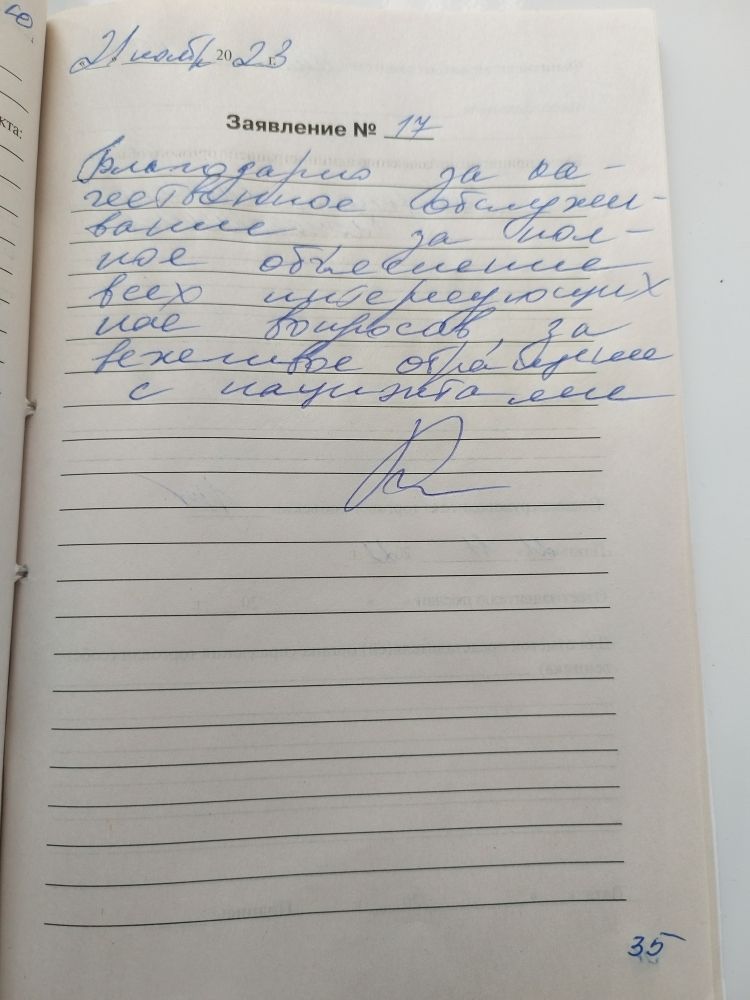 21 нояб 2023 г.
Заявление № 17
Благодарю за ка-
чественное обслужи-
вание за пол-
ное объяснение
всех интересующих
нас вопросов, за
вежливое обращение
с пациентами
35
кта: